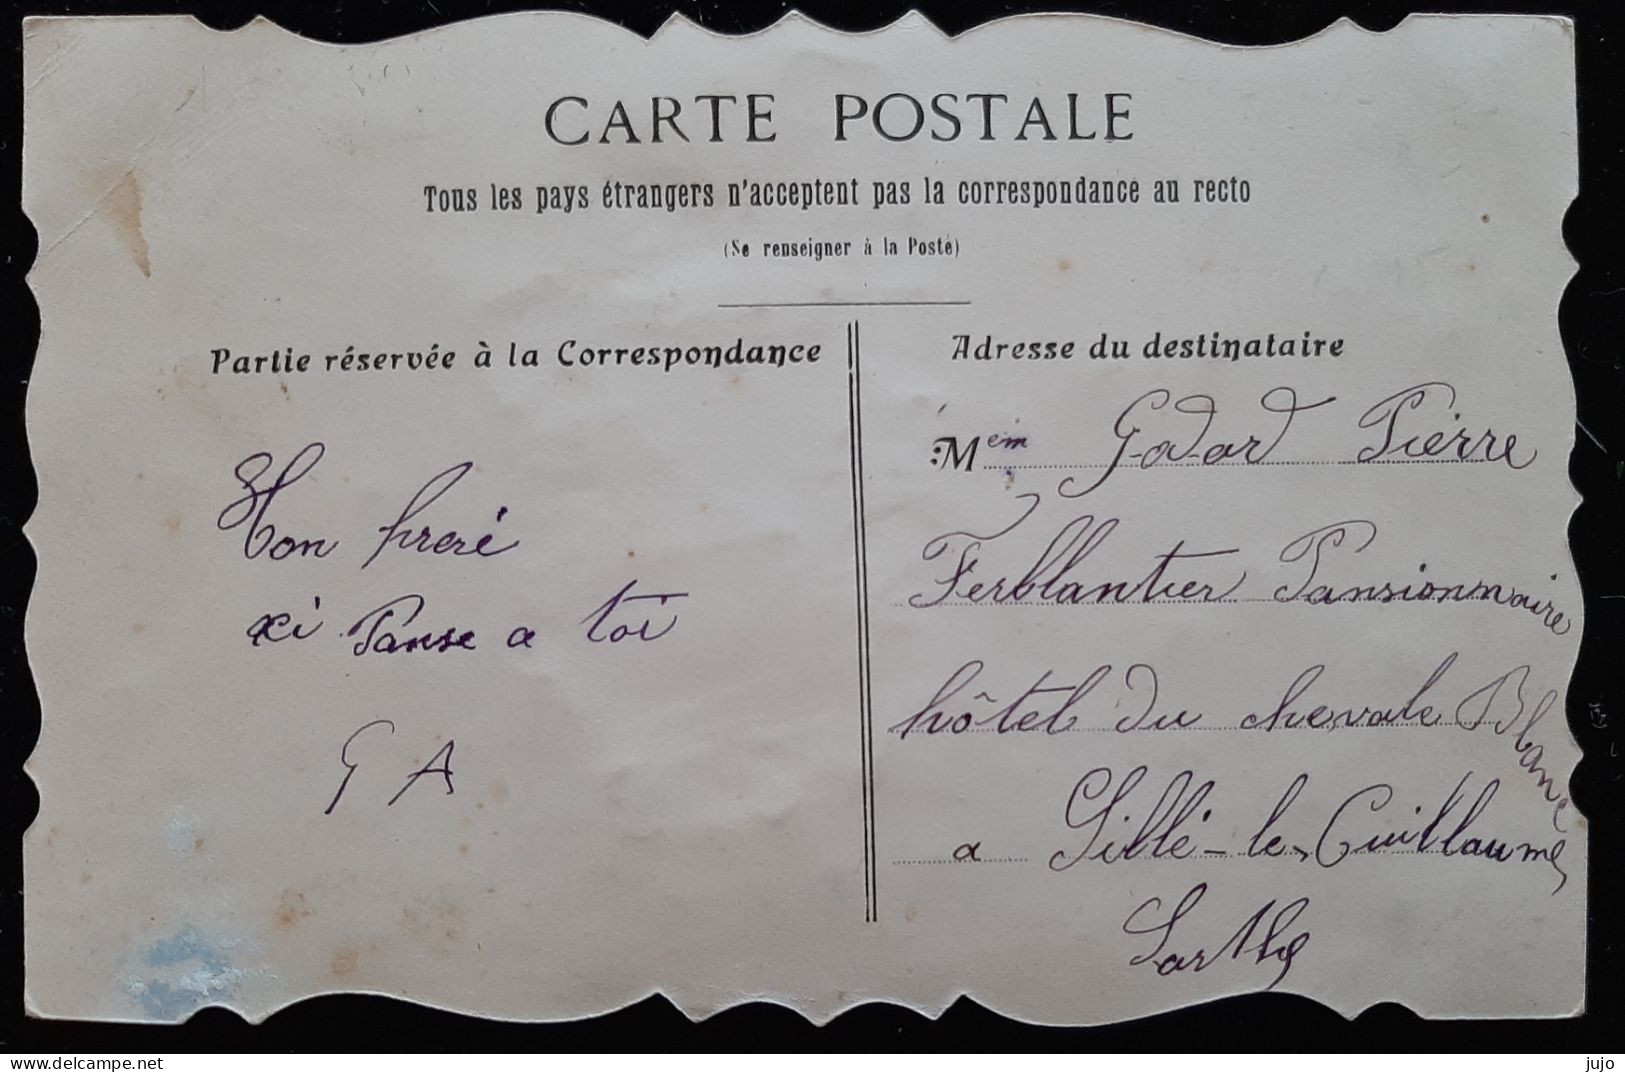 CARTE POSTALE
Tous les pays étrangers n'acceptent pas la correspondance au recto
(Se renseigner à la Poste)
Partie réservée à la Correspondance
Mon freré
qi Panse a toi
G A
Adresse du destinataire
Mem Godard Pierre
Ferblantier Pansionnaire
hôtel du chevale Blanc
a Sillé-le-Guillaume
Sarthe
www.delcampe.net
jujo